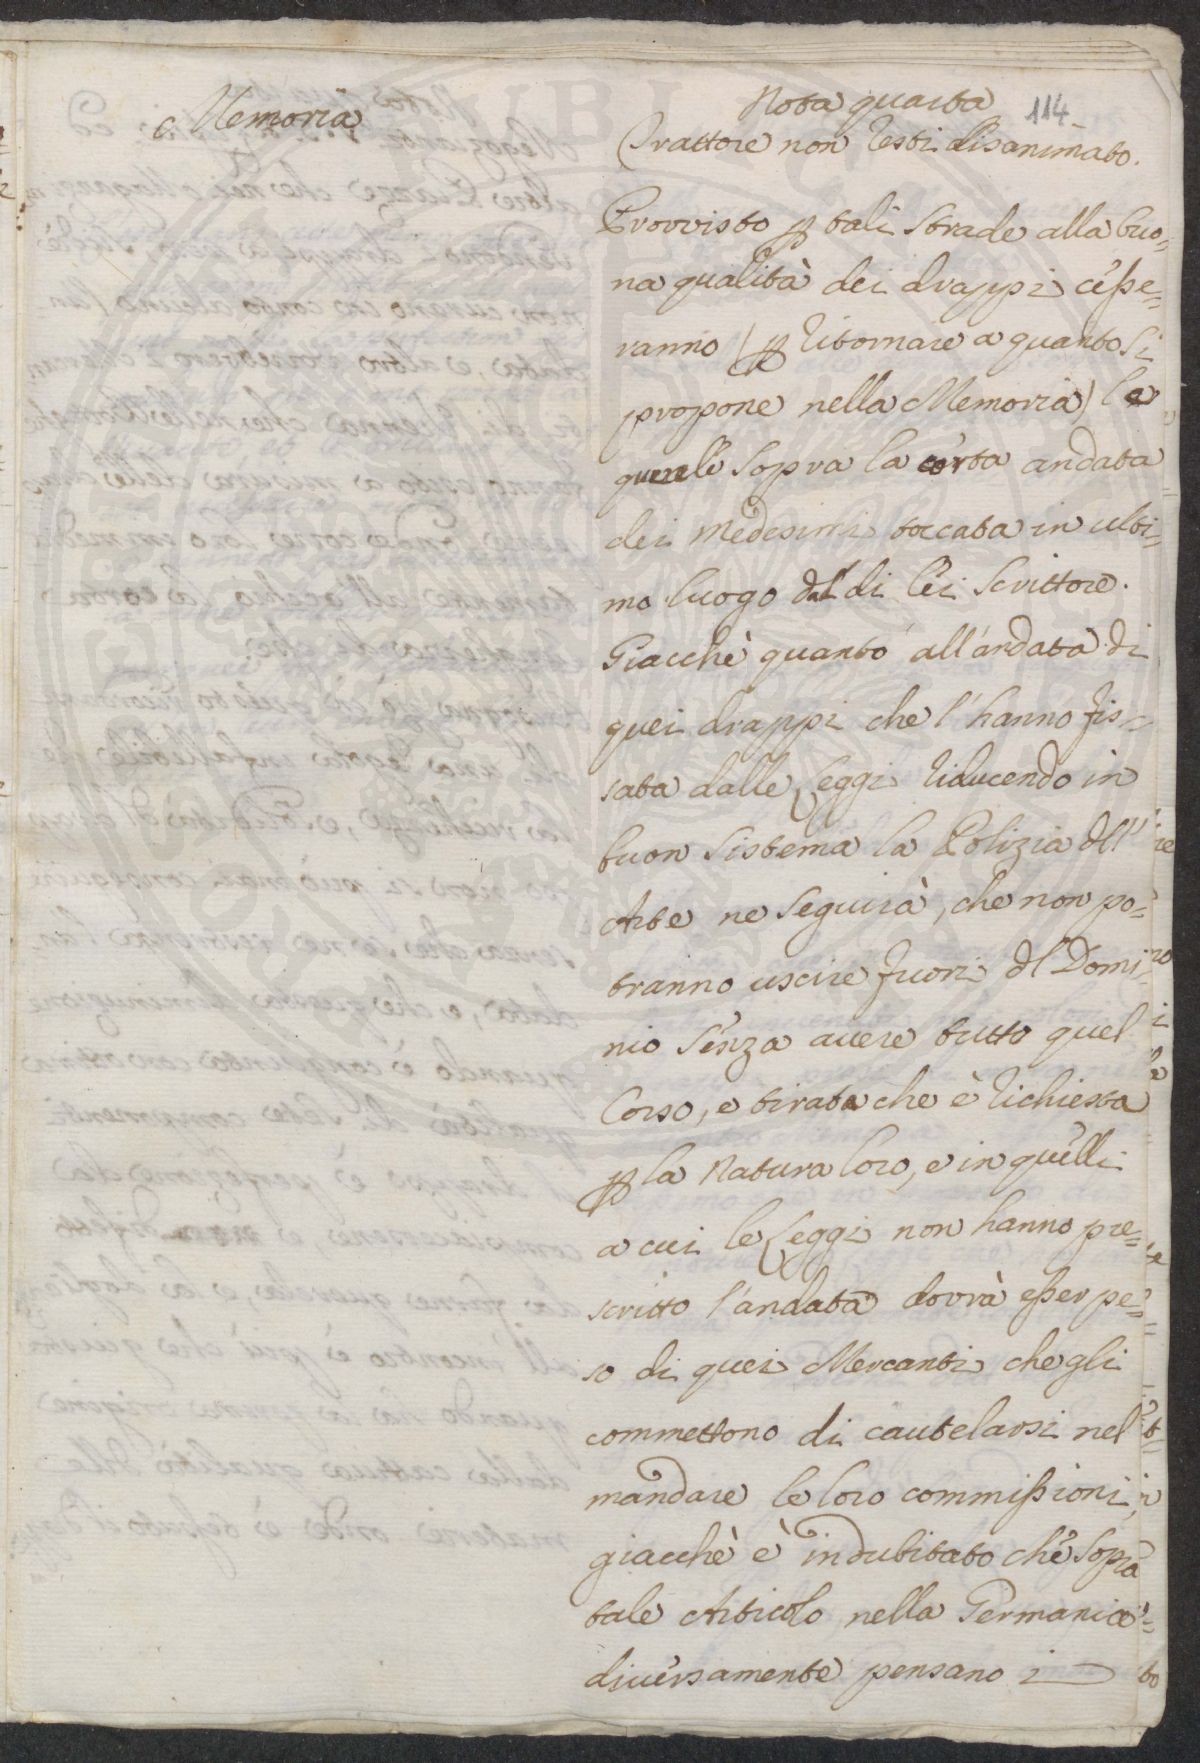 Memoria
Nota quarta
114
Trattore non resti disanimato.
Provvisto p tali strade alla buo=
na qualità dei drappi cesse=
ranno (p ritornare a quanto si
propone nella Memoria) le
querele sopra la corta andata
dei medesimi toccata in ulti=
mo luogo dal di lei scrittore.
Giacchè quanto all'andata di
quei drappi che l'hanno fis=
sata dalle Leggi riducendo in
buon sistema la Polizia dll'
Arte ne seguirà, che non po=
tranno uscire fuori dl Domi=
nio senza avere tutto quel
Corso, e tirata che è richiesta
p la natura loro, e in quelli
a cui le Leggi non hanno pre=
scritto l'andata dovrà esser pe=
so di quei Mercanti che gli
commettono di cautelarsi nel
mandare le loro commissioni,
giacchè è indubitato che sopra
tale Articolo nella Germania
diversamente pensano i